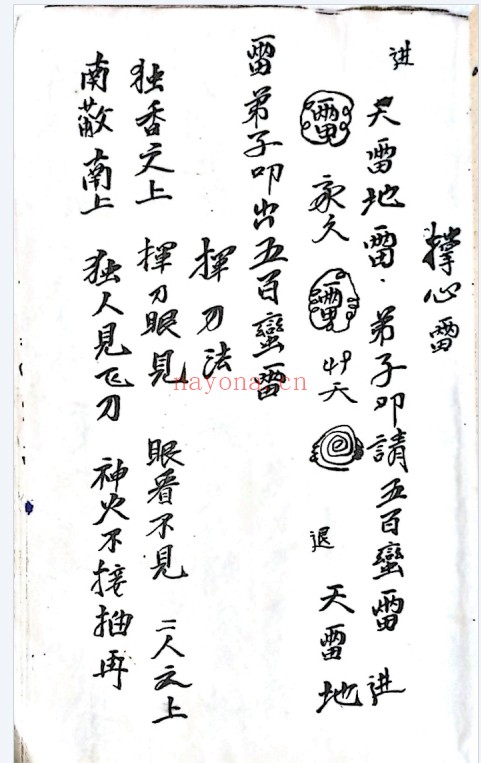 撑心雷
進 天雷地雷·弟子叩請五百蠻雷 進
天 退 天雷地
雷弟子叩出五百蠻雷
揮刀法
独香文上 揮刀眼見 眼看不見 二人文上
南散南上 独人見飞刀 神火不接抽再
nayona.cn